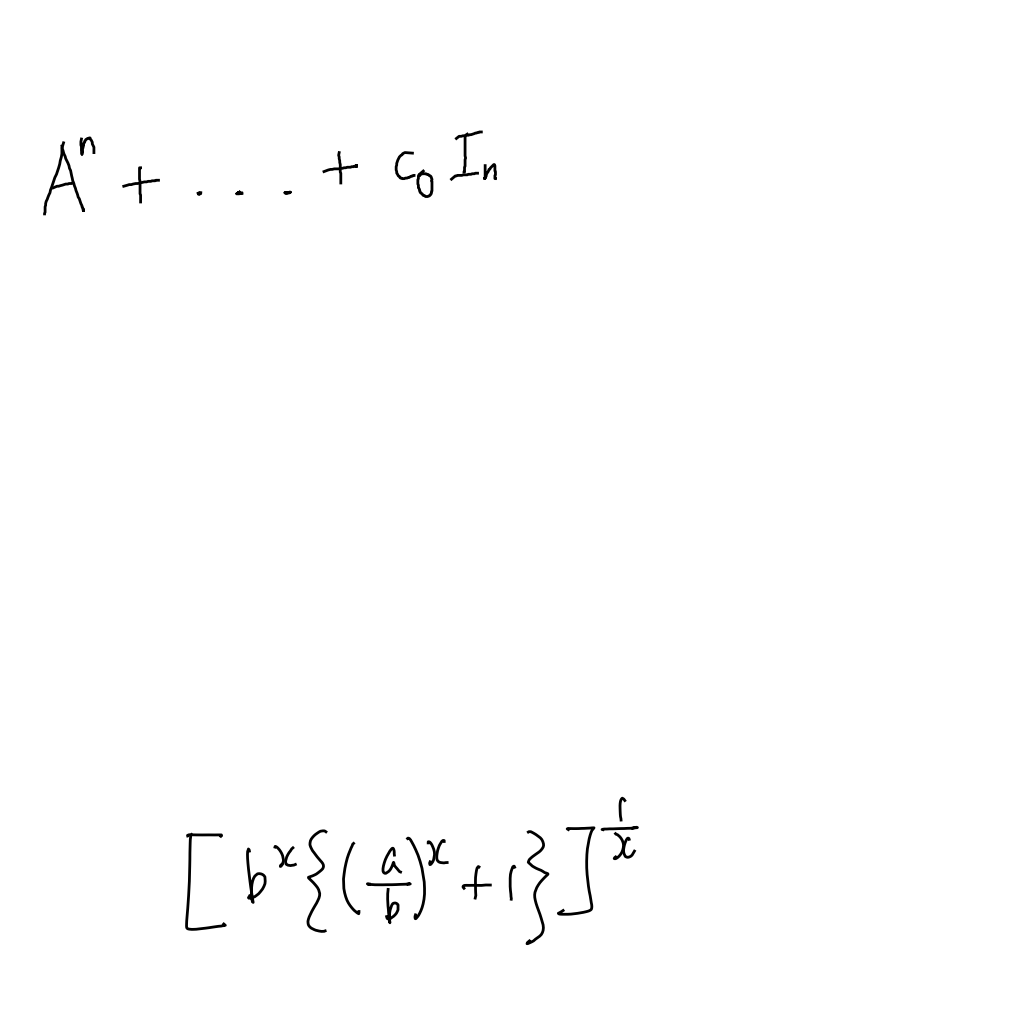 $A^n + \ldots + c_0 I_n$
$\left[ b^x \left\{ \left( \frac{a}{b} \right)^x + 1 \right\} \right]^{\frac{1}{x}}$